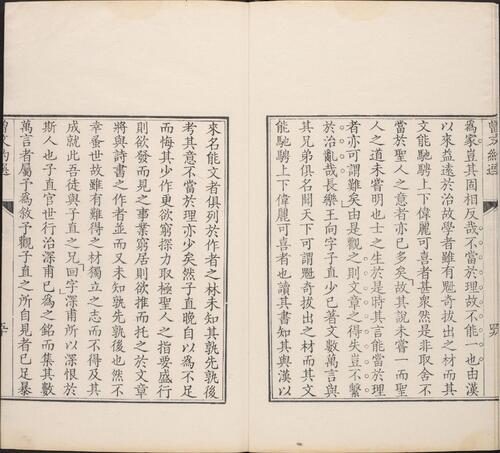 為家豈其固相反哉不當於理故不能一也由漢
以來益遠於治故學者雖有魁奇拔出之材而其
文能馳騁上下偉麗可喜者甚衆然是非取舍不
當於聖人之意者亦已多矣故其說未嘗一而聖
人之道未嘗明也士之生於是時其言能當於理
者亦可謂難矣由是觀之則文章之得失豈不繫
於治亂哉長樂王向字子直少已著文數萬言與
其兄弟俱名聞天下可謂魁奇拔出之材而其文
能馳騁上下偉麗可喜者也讀其書知其與漢以
來名能文者俱列於作者之林未知其孰先孰後
考其意不當於理亦少矣然子直晚自以為不足
而悔其少作更欲窮探力取極聖人之指要盛行
則欲發而見之事業窮居則欲推而托之於文章
將與詩書之作者並而又未知孰先孰後也然不
幸蚤世故雖有難得之材獨立之志而不得及其
成就此吾徒與子直之兄回字深甫所以深恨於
斯人也子直官世行治深甫已為之銘而集其數
萬言者屬予為敘予觀子直之所自見者已足暴